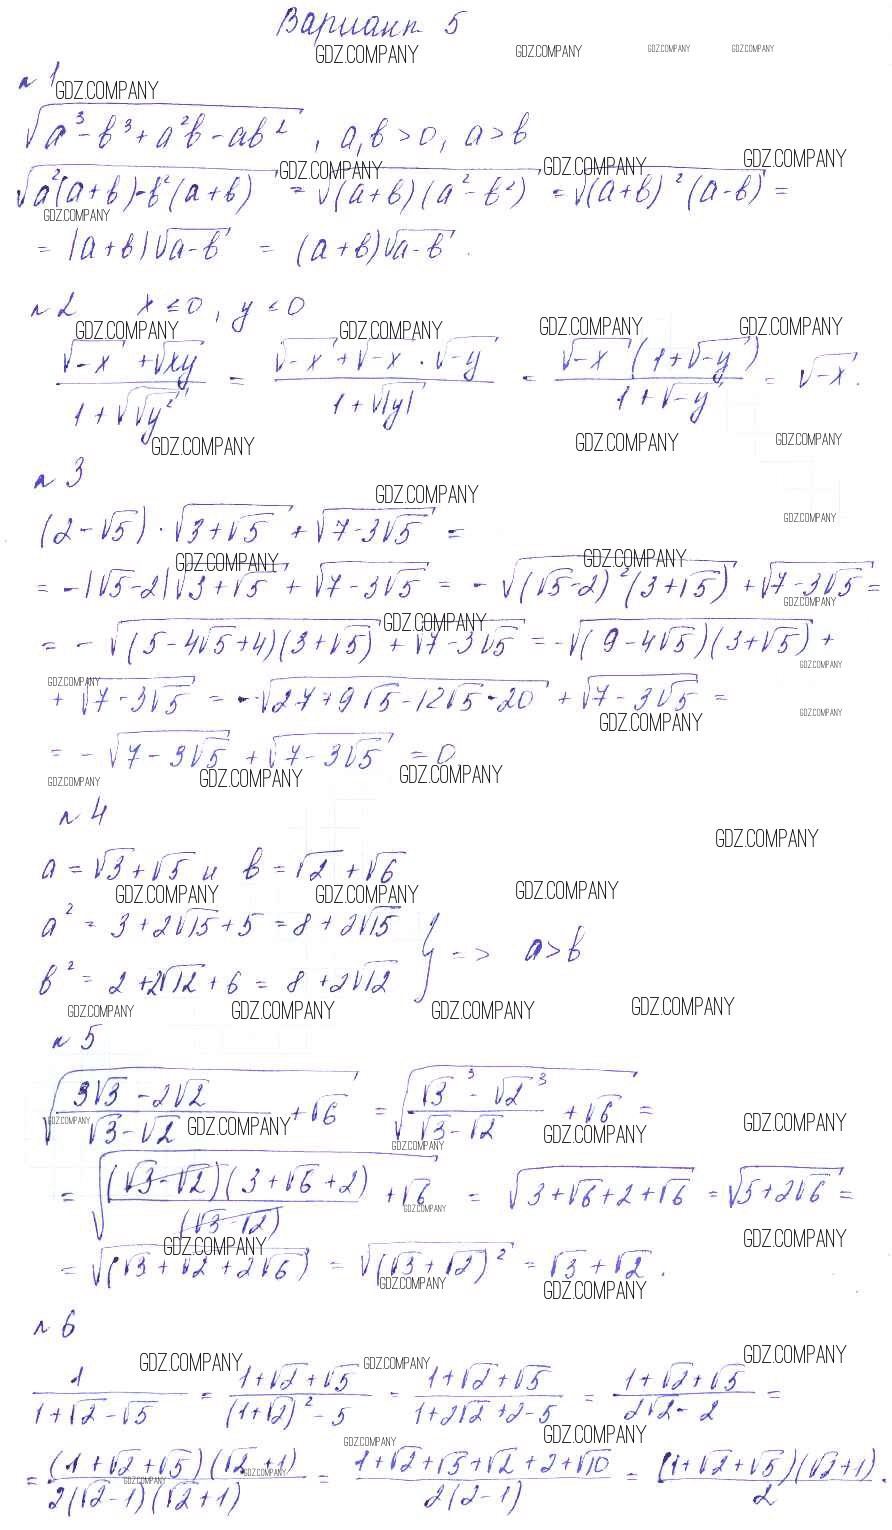 Вариант 5
GDZ.COMPANY GDZ.COMPANY GDZ.COMPANY GDZ.COMPANY
n 1
GDZ.COMPANY
√(a³-b³+a²b-ab²), a,b>0, a>b
GDZ.COMPANY GDZ.COMPANY GDZ.COMPANY
√(a²(a+b)-b²(a+b)) = √((a+b)(a²-b²)) = √((a+b)²(a-b)) =
GDZ.COMPANY
= |a+b|√(a-b) = (a+b)√(a-b).
n 2 x ≤ 0, y ≤ 0
GDZ.COMPANY GDZ.COMPANY GDZ.COMPANY GDZ.COMPANY
(√(-x) + √(xy))/(1+√(√(y²))) = (√(-x) + √(-x) · √(-y))/(1+√|y|) = (√(-x)(1+√(-y)))/(1+√(-y)) = √(-x).
GDZ.COMPANY GDZ.COMPANY GDZ.COMPANY
n 3
GDZ.COMPANY
GDZ.COMPANY
(2-√5) · √(3+√5) + √(7-3√5) =
GDZ.COMPANY GDZ.COMPANY
= -|√5-2|√(3+√5) + √(7-3√5) = -√((√5-2)²(3+√5)) + √(7-3√5) =
GDZ.COMPANY
GDZ.COMPANY
= -√((5-4√5+4)(3+√5)) + √(7-3√5) = -√((9-4√5)(3+√5)) +
GDZ.COMPANY
GDZ.COMPANY
+ √(7-3√5) = -√(27+9√5-12√5-20) + √(7-3√5) =
GDZ.COMPANY GDZ.COMPANY
= -√(7-3√5) + √(7-3√5) = 0
GDZ.COMPANY GDZ.COMPANY GDZ.COMPANY
n 4
GDZ.COMPANY
a = √3+√5 и b = √2+√6
GDZ.COMPANY GDZ.COMPANY GDZ.COMPANY
a² = 3+2√15+5 = 8+2√15
} => a>b
b² = 2+2√12+6 = 8+2√12
GDZ.COMPANY GDZ.COMPANY GDZ.COMPANY GDZ.COMPANY
n 5
√((3√3-2√2)/(√3-√2) + √6) = √((√3³-√2³)/(√3-√2) + √6) =
GDZ.COMPANY GDZ.COMPANY GDZ.COMPANY GDZ.COMPANY GDZ.COMPANY
= √(((√3-√2)(3+√6+2))/((√3-√2)) + √6) = √(3+√6+2+√6) = √(5+2√6) =
GDZ.COMPANY
GDZ.COMPANY GDZ.COMPANY
= √(√3+√2+2√6) = √((√3+√2)²) = √3+√2.
GDZ.COMPANY GDZ.COMPANY
n 6
GDZ.COMPANY GDZ.COMPANY GDZ.COMPANY
1/(1+√2-√5) = (1+√2+√5)/((1+√2)²-5) = (1+√2+√5)/(1+2√2+2-5) = (1+√2+√5)/(2√2-2) =
GDZ.COMPANY GDZ.COMPANY
= ((1+√2+√5)(√2+1))/(2(√2-1)(√2+1)) = (1+√2+√5+√2+2+√10)/(2(2-1)) = ((1+√2+√5)(√2+1))/2.
GDZ.COMPANY GDZ.COMPANY